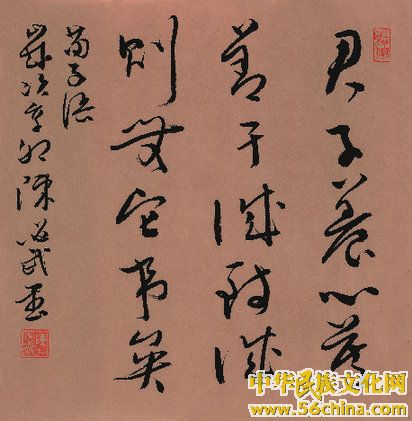 君子養心莫
善于誠致誠
則無它事矣
荀子語
歲次辛卯陳
中华民族文化网
www.56china.com